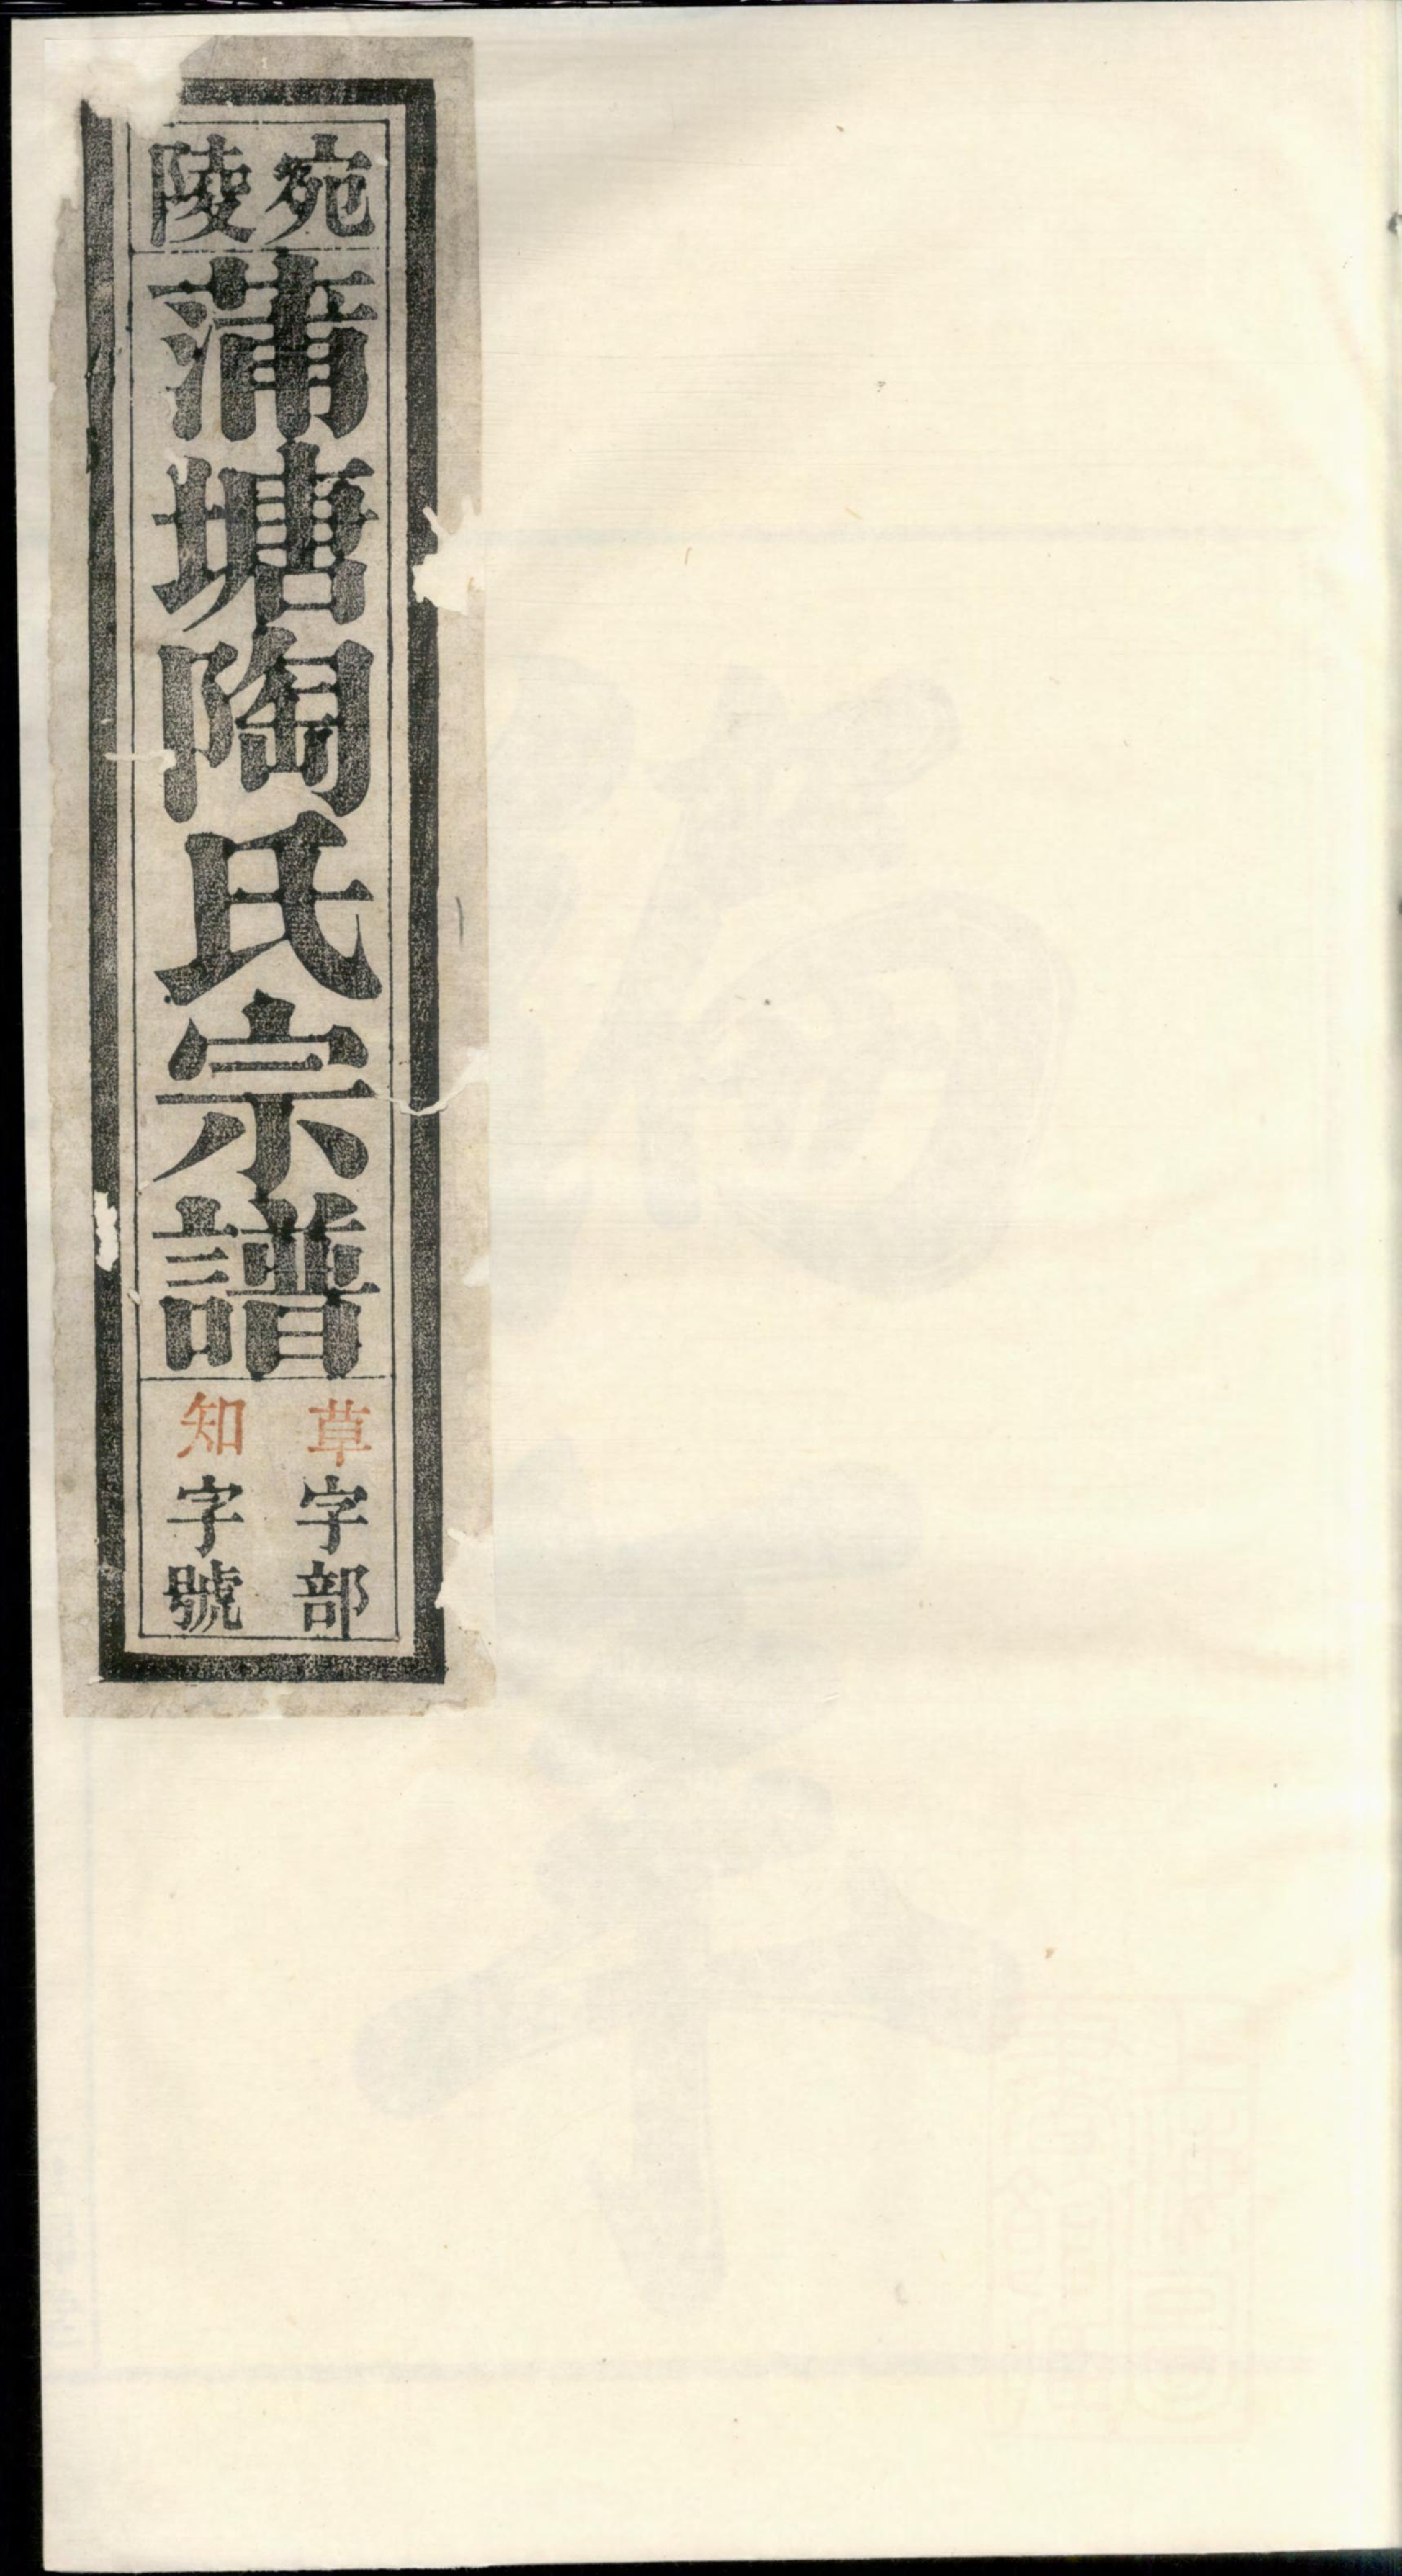 宛陵
蒲塘陶氏宗譜
草字部
知字號